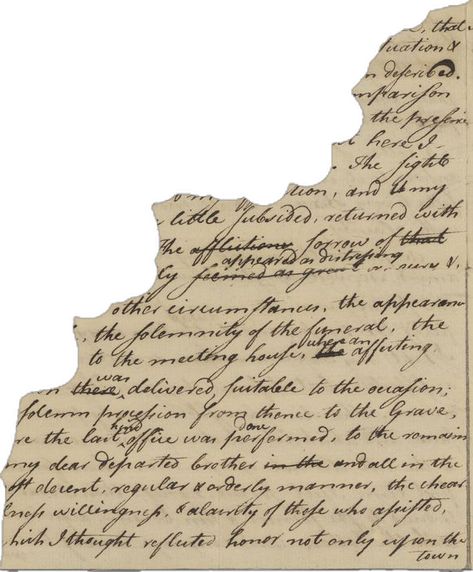 that
uation &
n described.
mparison
the preserv
here I
The sight
tion, and my
little subsided, returned with
The afflictions sorrow of that
appeared as distressing
ly seemed as great as ours &
other circumstances, the appearan
, the solemnity of the funeral, the
to the meeting house, where an the affecting
was
n there delivered suitable to the occasion;
solemn procession from thence to the Grave,
re the last kind office was performed, done to the remain
my dear departed brother in the and all in the
st decent, regular & orderly manner, the chear
lness willingness, & alacrity of those who assisted,
hich I thought reflected honor not only upon the
town